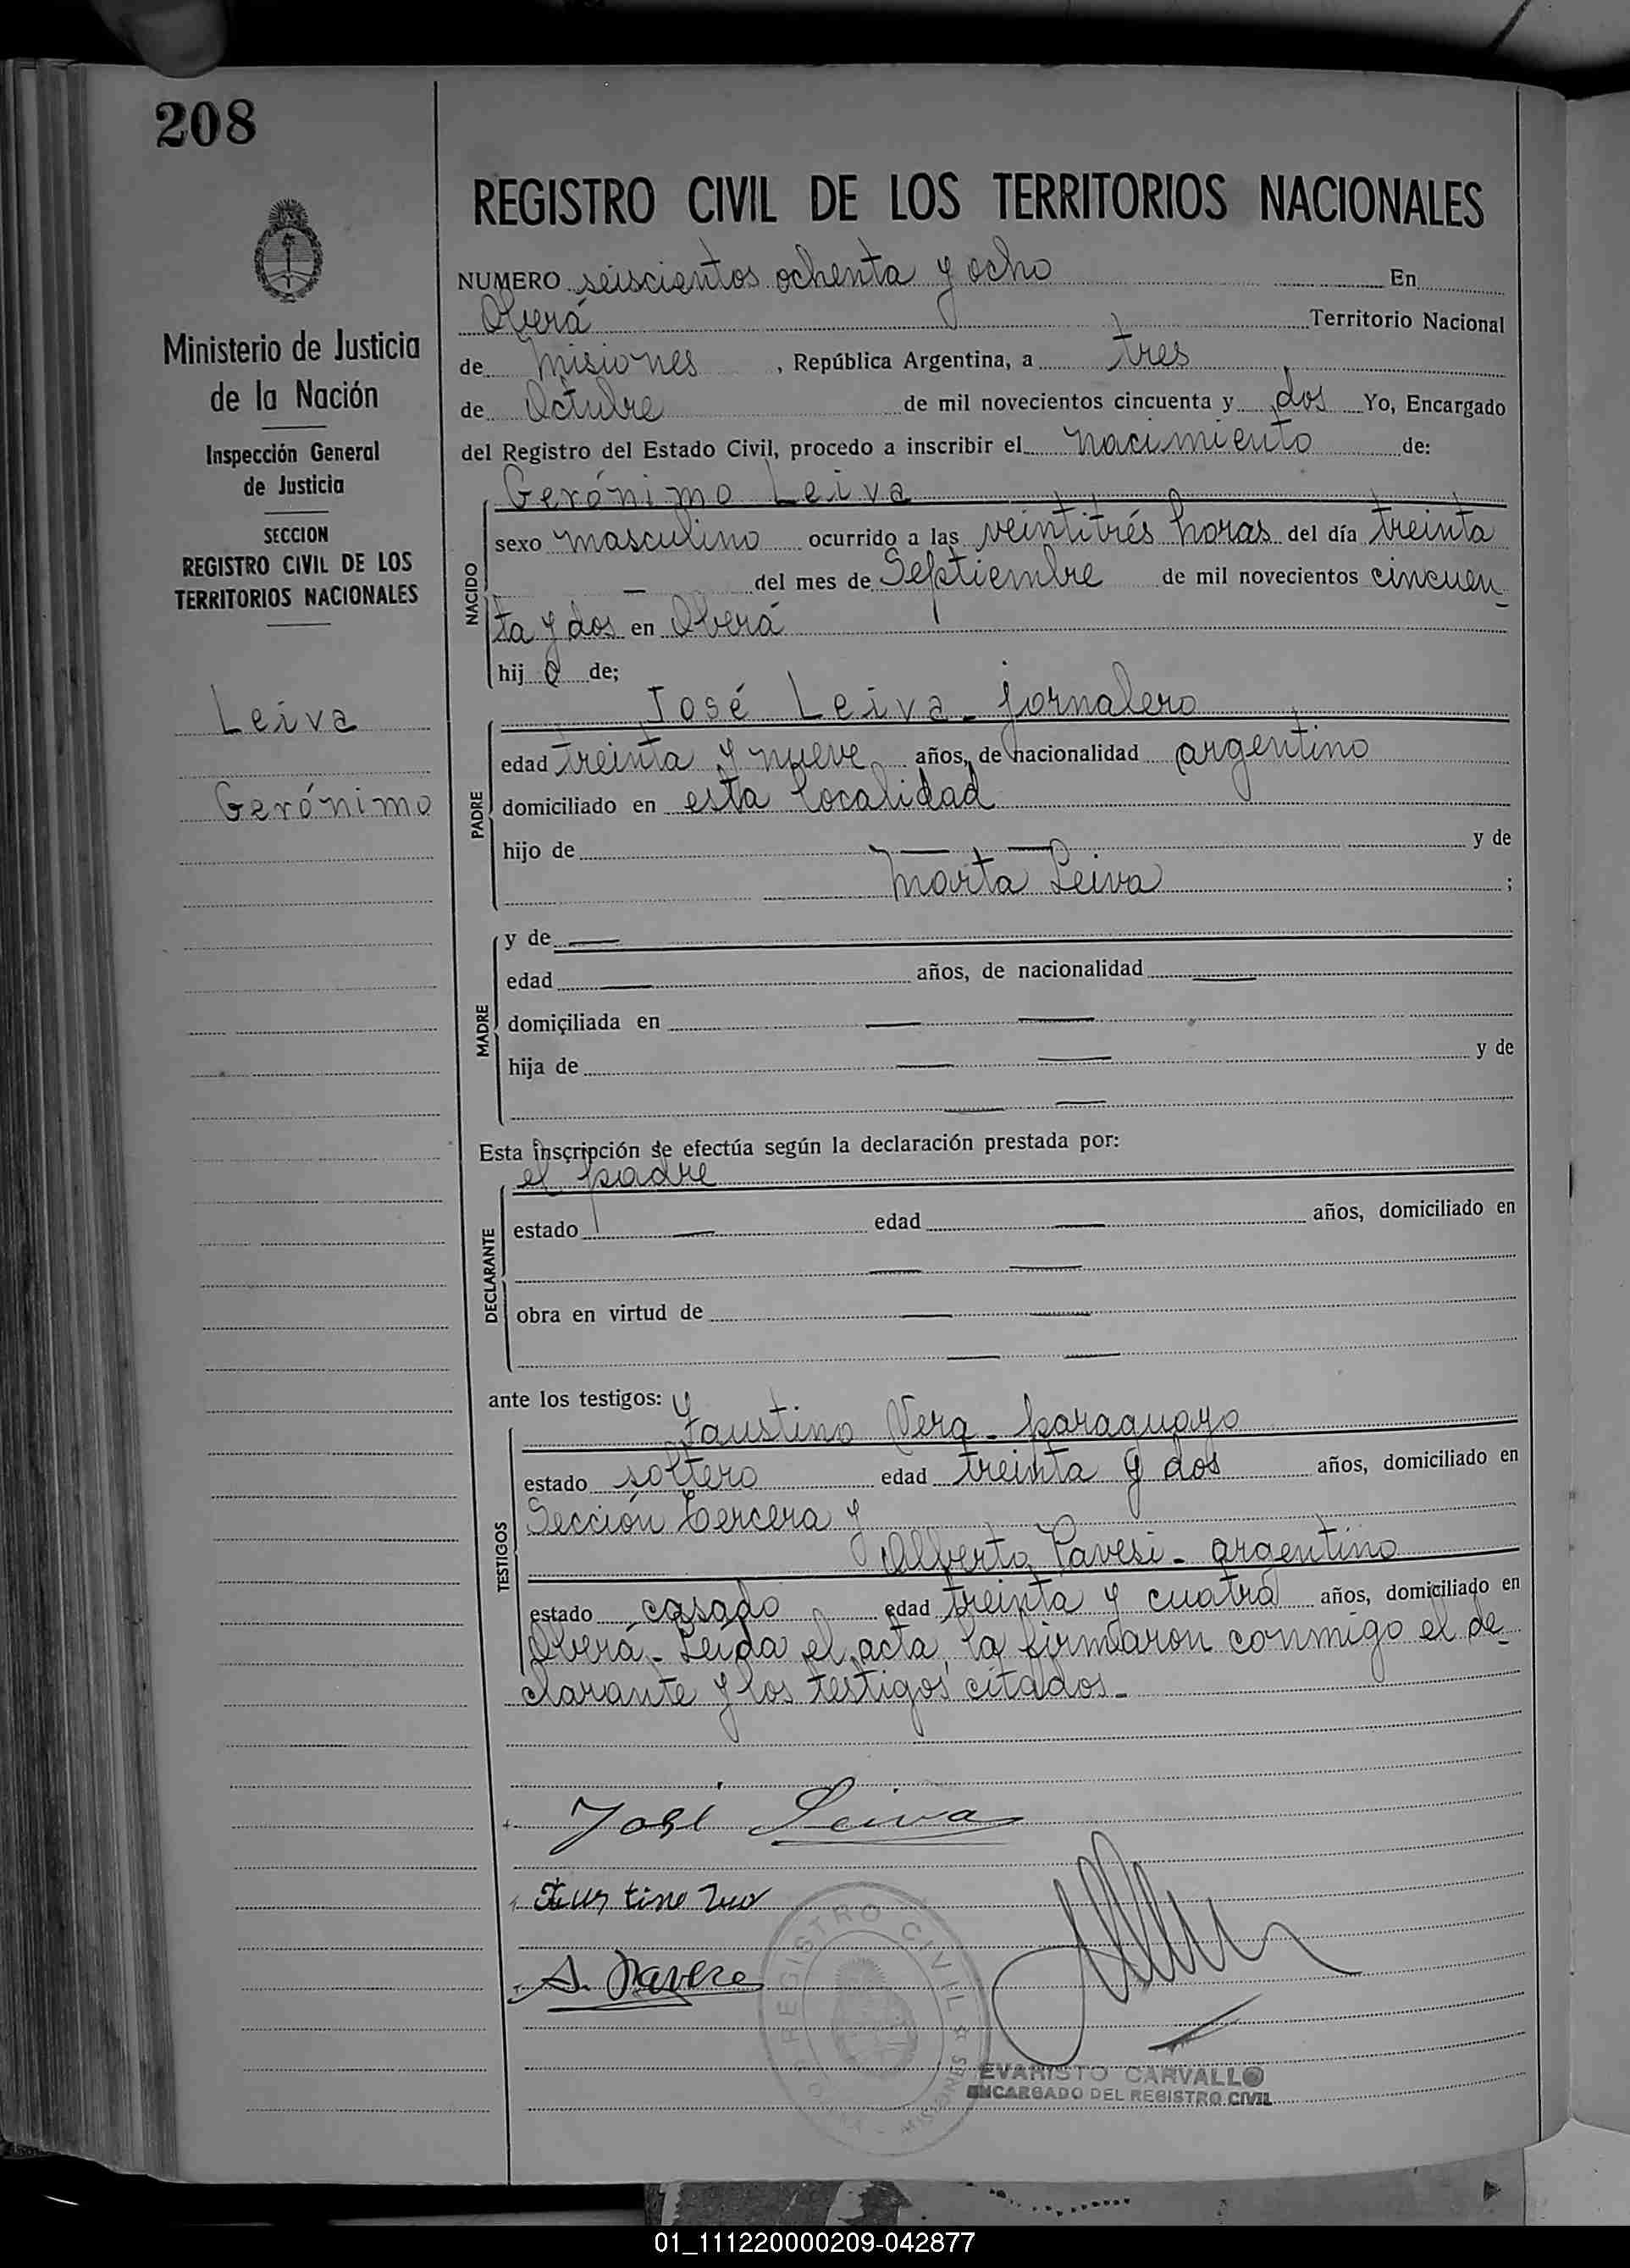 208
Ministerio de Justicia
de la Nación
Inspección General
de Justicia
SECCION
REGISTRO CIVIL DE LOS
TERRITORIOS NACIONALES
Leiva
Gerónimo
REGISTRO CIVIL DE LOS TERRITORIOS NACIONALES
NUMERO seiscientos ochenta y ocho En
Oberá Territorio Nacional
de Misiones , República Argentina, a tres
de Octubre de mil novecientos cincuenta y dos Yo, Encargado
del Registro del Estado Civil, procedo a inscribir el nacimiento de:
NACIDO
Gerónimo Leiva
sexo masculino ocurrido a las veintitrés horas del día treinta
— del mes de Septiembre de mil novecientos cincuen-
ta y dos en Oberá
hij o de;
PADRE
José Leiva - jornalero
edad treinta y nueve años, de nacionalidad argentino
domiciliado en esta localidad
hijo de — — y de
Marta Leiva ;
MADRE
y de —
edad — años, de nacionalidad —
domiciliada en — —
hija de — — y de
— —
Esta inscripción se efectúa según la declaración prestada por:
DECLARANTE
el padre
estado — edad — años, domiciliado en
— —
obra en virtud de — —
— —
ante los testigos: y
TESTIGOS
Faustino Vera - paraguayo
estado soltero edad treinta y dos años, domiciliado en
Sección tercera y
Alberto Pavesi - argentino
estado casado edad treinta y cuatro años, domiciliado en
Oberá - Leída el acta, la firmaron conmigo el de-
clarante y los testigos citados.-
José Leiva
A. Pavese
REGISTRO CIVIL
MISIONES
EVARISTO CARVALLO
ENCARGADO DEL REGISTRO CIVIL
01_111220000209-042877